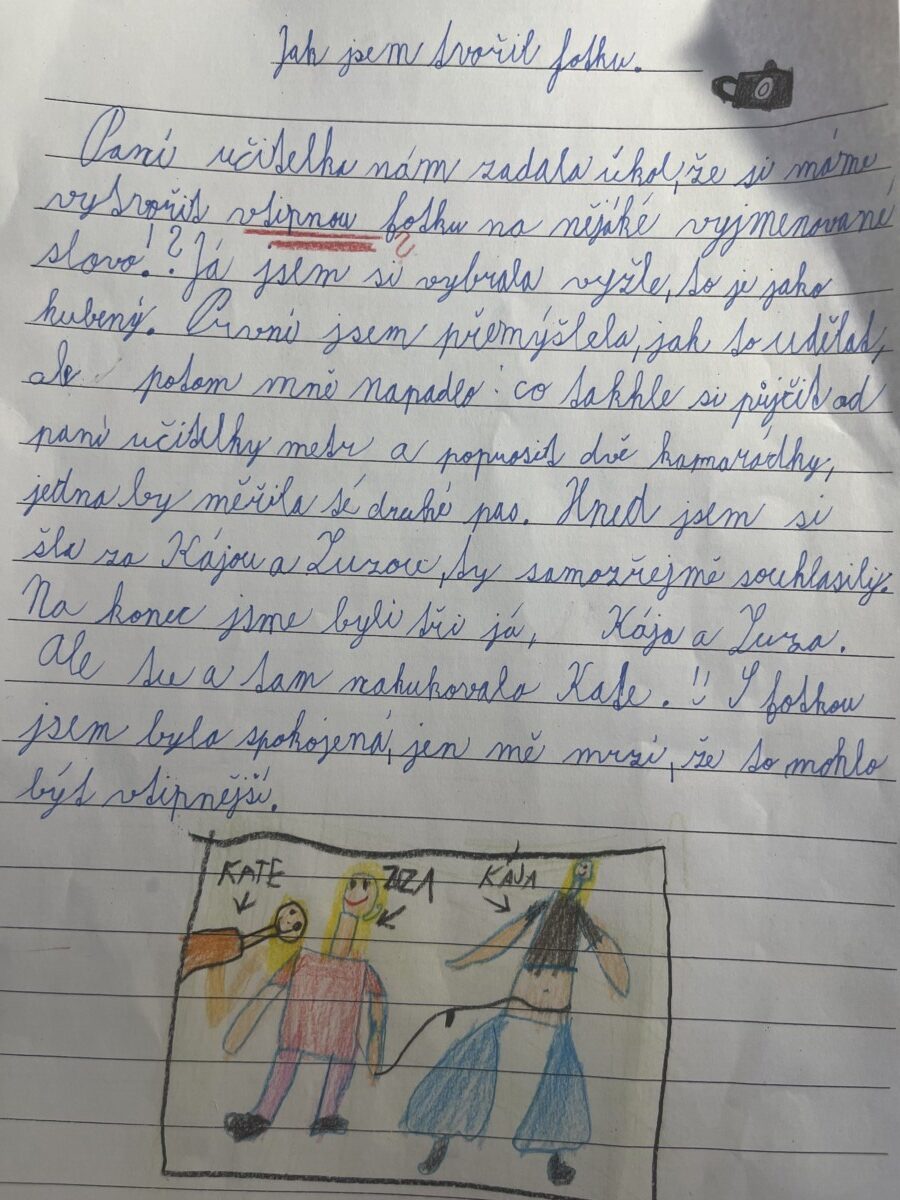 Jak jsem tvořil fotku.
Paní učitelka nám zadala úkol, že si máme
vytvořit vtipnou fotku na nějaké vyjmenované
slovo!? ? Já jsem si vybrala vyžle, to je jako
hubený. První jsem přemýšlela, jak to udělat,
ale potom mně napadlo: co takhle si půjčit od
paní učitelky metr a poprosit dvě kamarádky,
jedna by měřila té druhé pas. Hned jsem si
šla za Kájou a Zuzou, ty samozřejmě souhlasily.
Na konec jsme byli tři já, Kája a Zuza.
Ale tu a tam nahukovala Kate. !! S fotkou
jsem byla spokojená, jen mě mrzí, že to mohlo
být vtipnější.
KATE ZUZA KÁJA